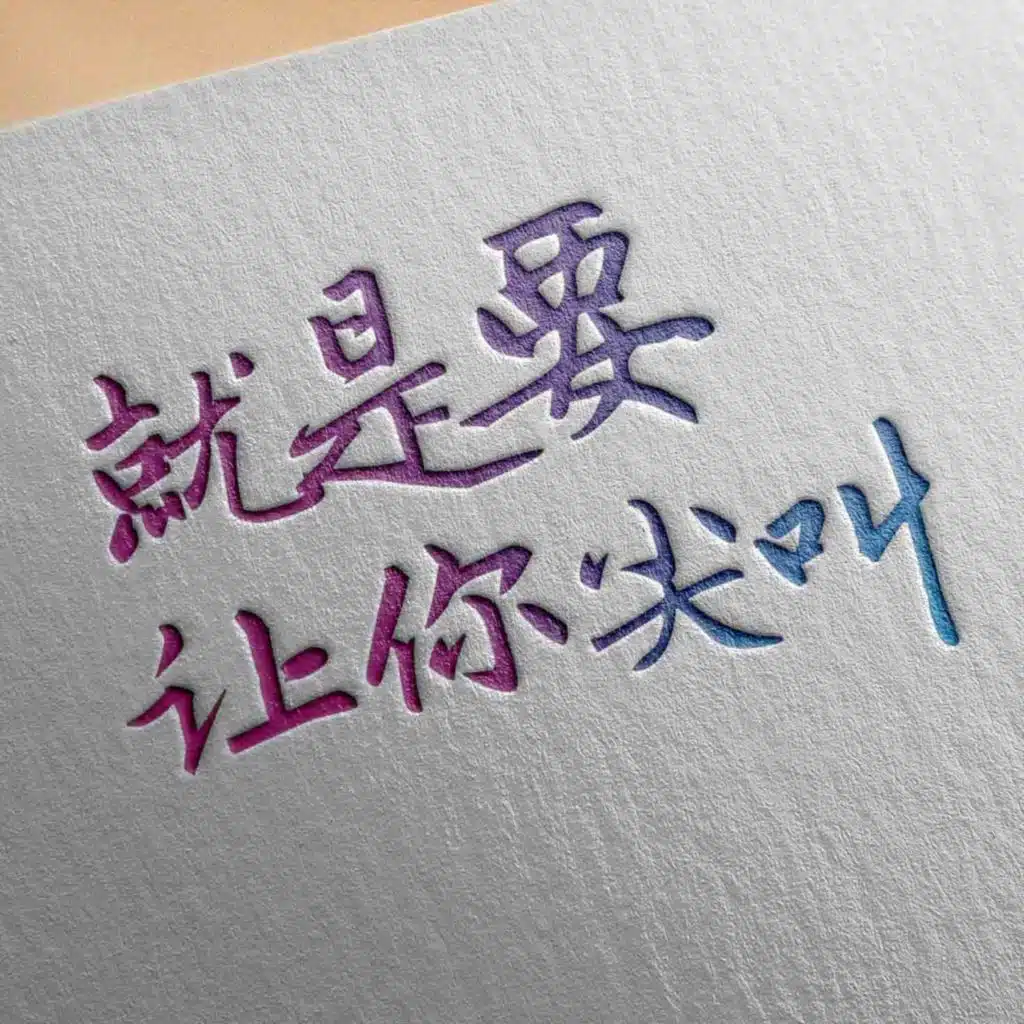 就是要
让你尖叫